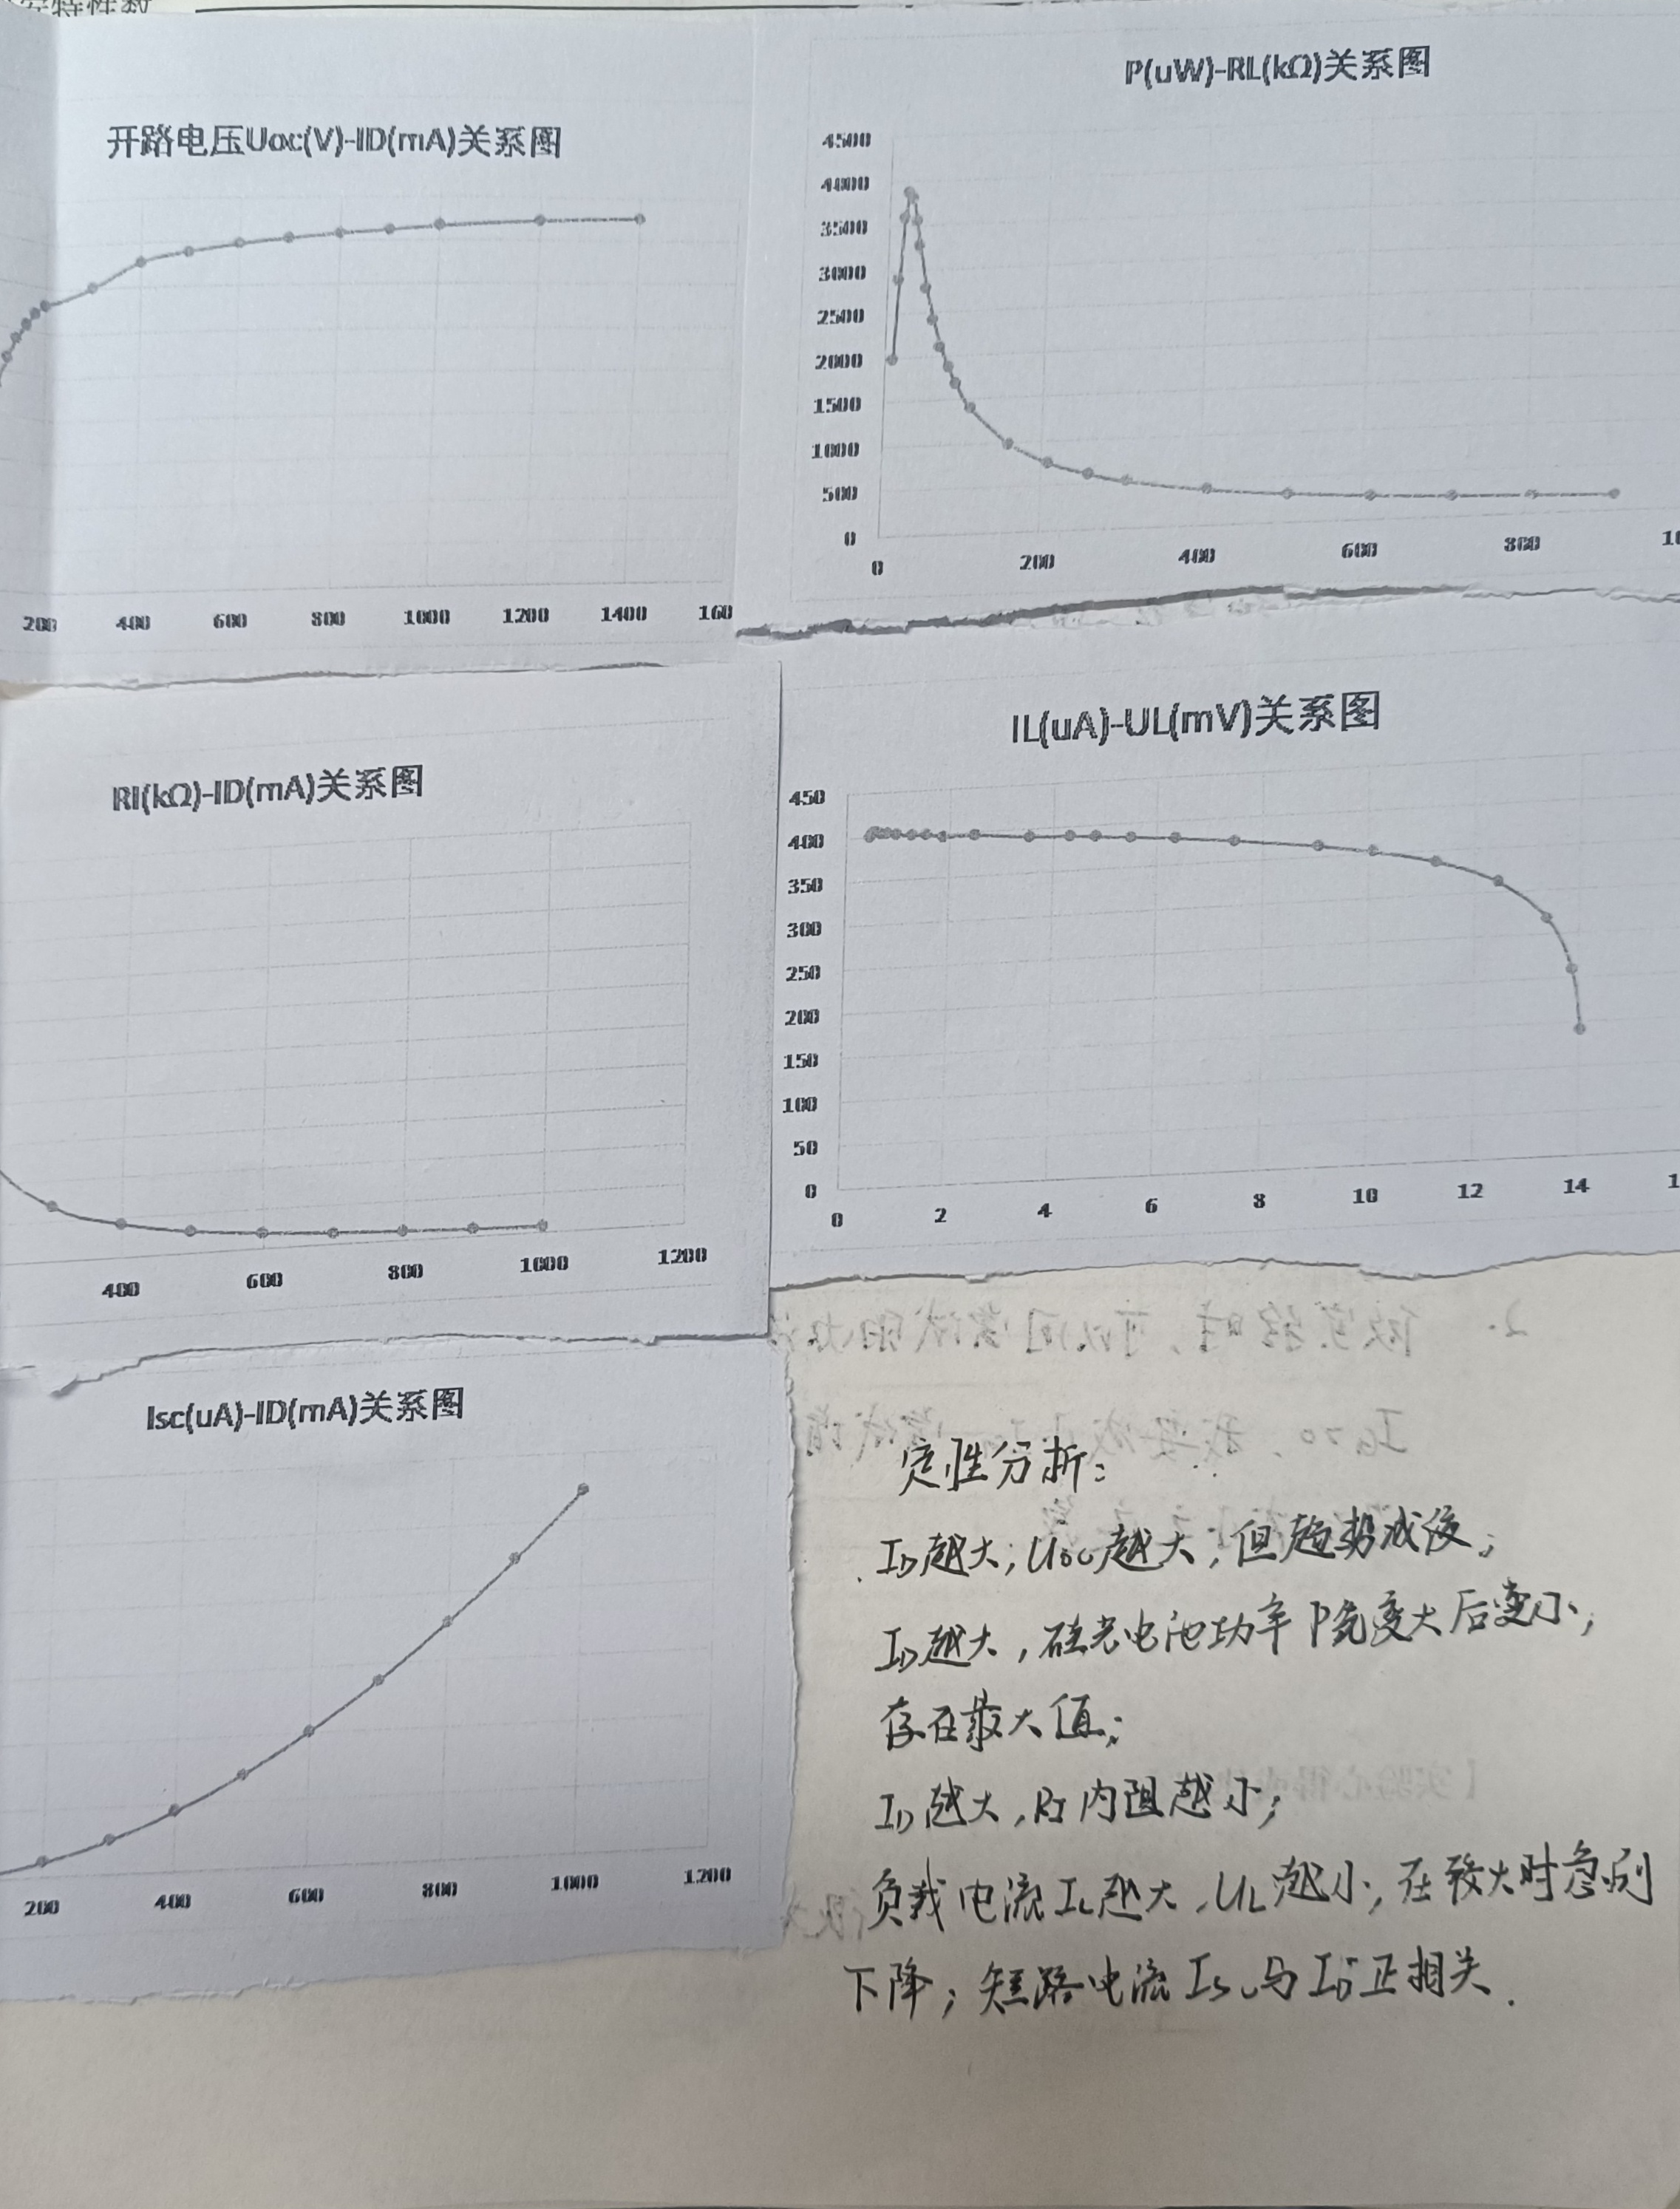 开路电压Uoc(V)-ID(mA)关系图
200 400 600 800 1000 1200 1400 160
P(uW)-RL(kΩ)关系图
4500
4000
3500
3000
2500
2000
1500
1000
500
0
0 200 400 600 800 10
RI(kΩ)-ID(mA)关系图
400 600 800 1000 1200
IL(uA)-UL(mV)关系图
450
400
350
300
250
200
150
100
50
0
0 2 4 6 8 10 12 14 1
Isc(uA)-ID(mA)关系图
200 400 600 800 1000 1200
定性分析:
ID越大,Uoc越大,但趋势减缓;
ID越大,硅光电池功率P先变大后变小,
存在最大值;
ID越大,RI内阻越小;
负载电流IL越大,UL越小,在较大时急剧
下降;短路电流Isc与ID正相关.